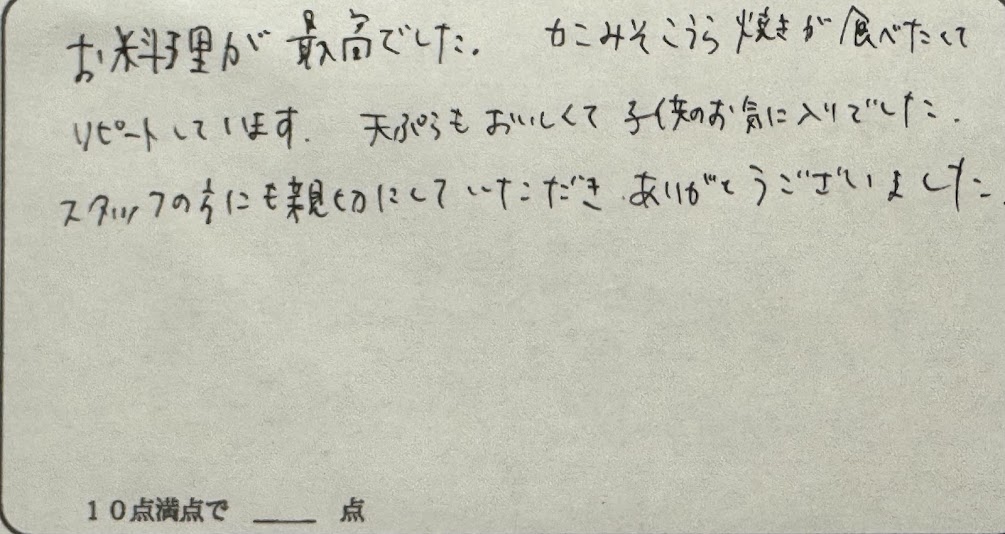 お料理が最高でした。 かにみそこうら焼きが食べたくて
リピートしています。 天ぷらもおいしくて子供のお気に入りでした。
スタッフの方にも親切にしていただき、ありがとうございました。
10点満点で ____ 点